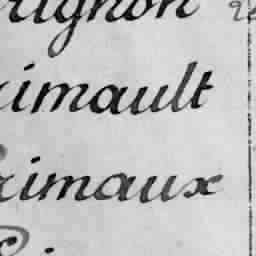 rignon
rimault
rimaux